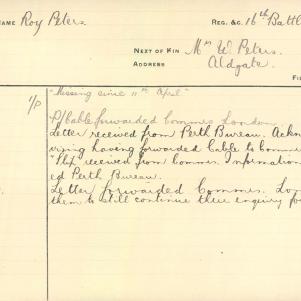 NAME Roy Peters REG. &C. 16th Battl
NEXT OF KIN Mrs W Peters.
ADDRESS Aldgate.
FI
"Missing since 11th April"
1/P
P/Cable forwarded Commrs London
Letter received from Perth Bureau. Ackn
vising having forwarded Cable to Comme
"Ply received from Commr. Information
ed Perth Bureau.
Letter forwarded Commrs. Lon
them to still continue there enquiry for